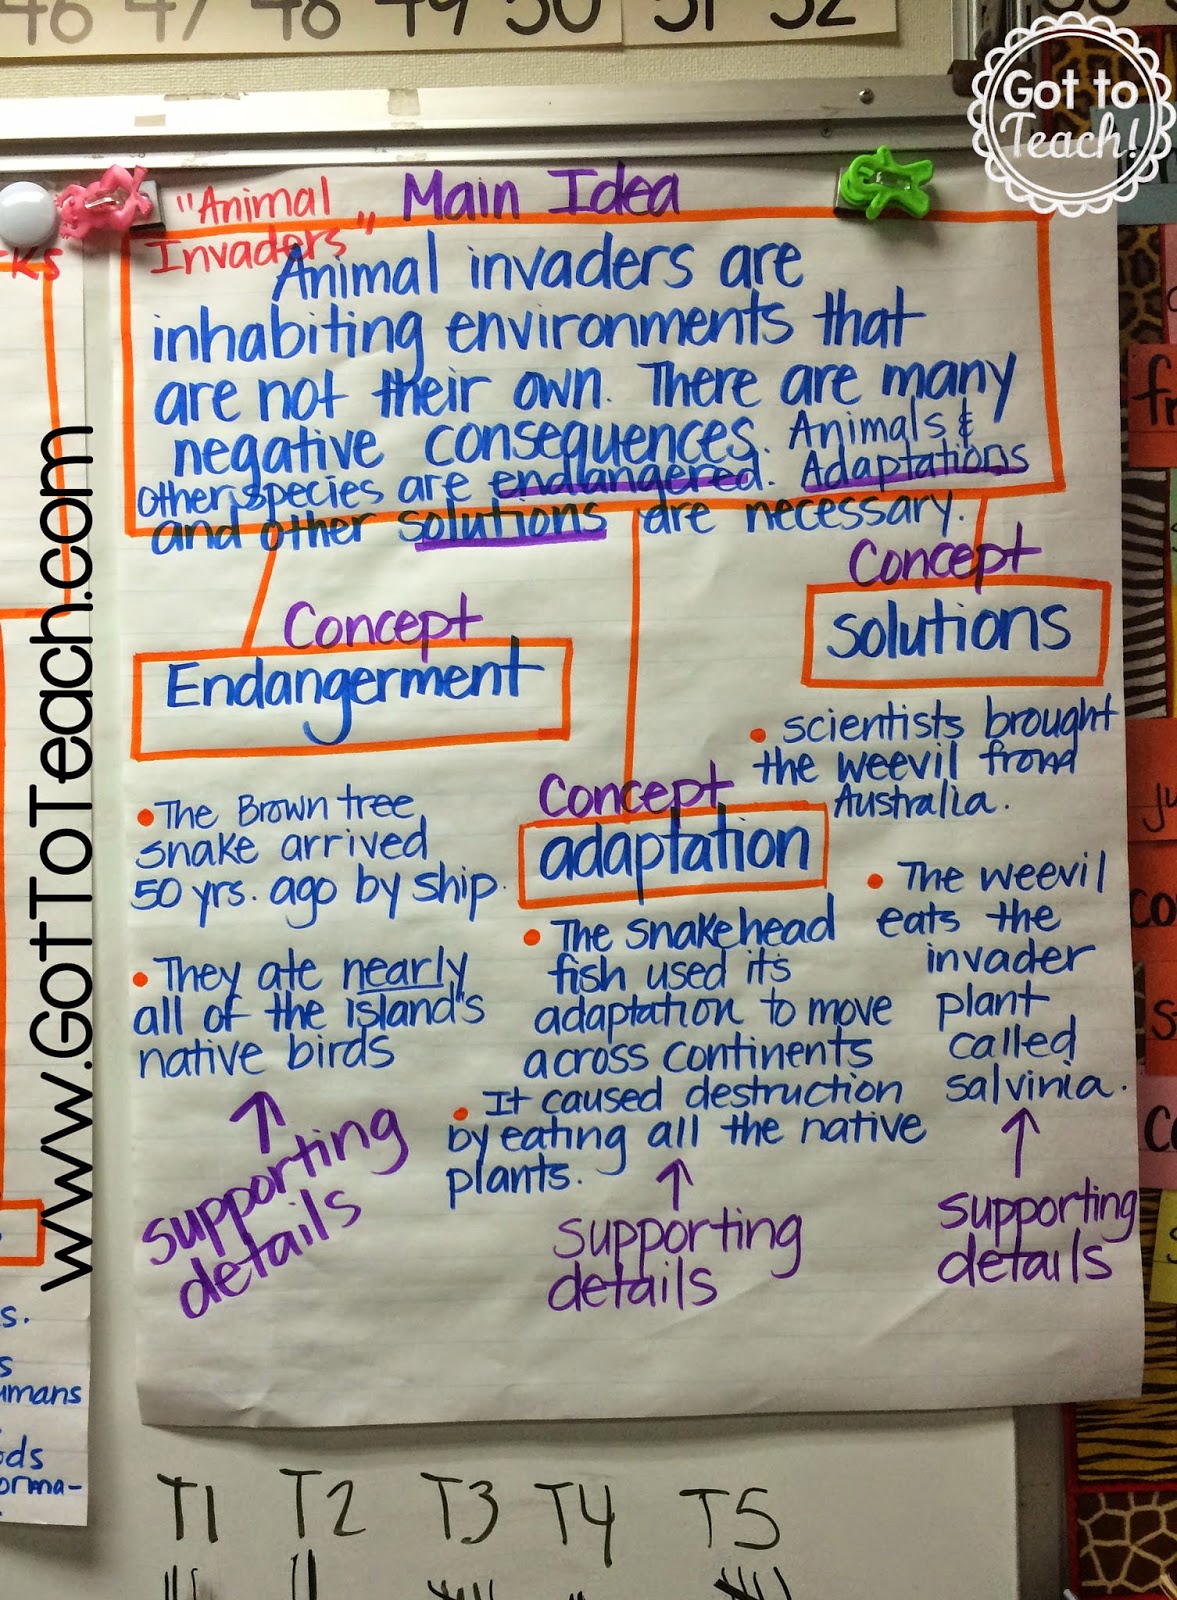 46 47 48 49 50 51 52
Got to
Teach!
www.GotToTeach.com
"Animal
Invaders"
Main Idea
Animal invaders are
inhabiting environments that
are not their own. There are many
negative consequences. Animals &
other species are endangered. Adaptations
and other solutions are necessary.
Concept
Endangerment
• The Brown tree
snake arrived
50 yrs. ago by ship.
• They ate nearly
all of the island's
native birds
↑
supporting
details
Concept
adaptation
• The snakehead
fish used its
adaptation to move
across continents
• It caused destruction
by eating all the native
plants.
↑
supporting
details
Concept
solutions
• scientists brought
the weevil from
Australia.
• The weevil
eats the
invader
plant
called
salvinia.
↑
supporting
details
T1 T2 T3 T4 T5